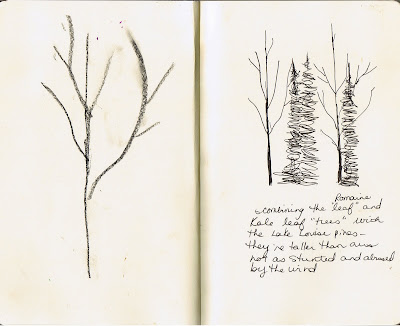 Romaine
combining the "leaf" and
Kale leaf "trees" with
the Lake Louise pines –
they're taller than ours
not as stunted and abused
by the wind